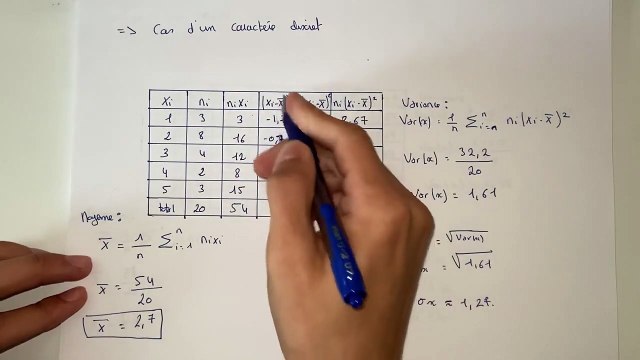 => Cas d'un caractère discret
xi ni nixi (xi-x̄) (xi-x̄)² ni(xi-x̄)²
1 3 3 -1,7 8,67
2 8 16
3 4 12
4 2 8
5 3 15
total 20 54
Moyenne :
x̄ = 1/n ∑ⁿᵢ₌₁ nixi
x̄ = 54/20
x̄ = 2,7
Variance :
Var(x) = 1/n ∑ⁿᵢ₌ₙ ni(xi-x̄)²
Var(x) = 32,2/20
Var(x) = 1,61
= √Var(x)
= √1,61
σx ≈ 1,27.